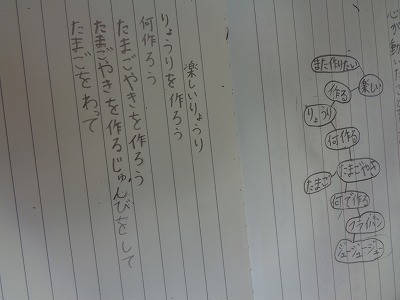 心が動いたこと
また作りたい
楽しい
作る
りょうり
何作る
たまごやき
たまご
何で作る
フライパン
ジュージュージュー
楽しいりょうり
りょうりを作ろう
何作ろう
たまごやきを作ろう
たまごやきを作るじゅんびをして
たまごをわって